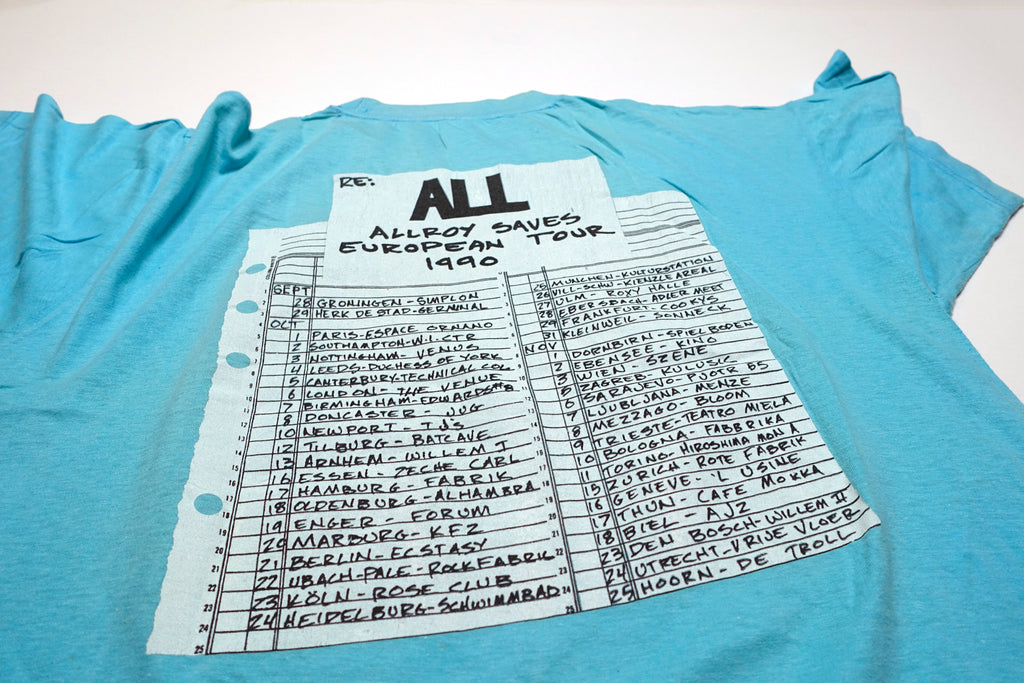 RE:
ALL
ALLROY SAVES
EUROPEAN TOUR
1990
SEPT
28 GRONINGEN - SIMPLON
29 HERK DE STAD - GERMINAL
OCT
1 PARIS - ESPACE ORNANO
2 SOUTHAMPTON - W.I. CTR
3 NOTTINGHAM - VENUS
4 LEEDS - DUCHESS OF YORK
5 CANTERBURY - TECHNICAL COL
6 LONDON - THE VENUE
7 BIRMINGHAM - EDWARDS #8
8 DONCASTER - JUG
10 NEWPORT - TJ'S
12 TILBURG - BATCAVE
13 ARNHEM - WILLEM I
16 ESSEN - ZECHE CARL
17 HAMBURG - FABRIK
18 OLDENBURG - ALHAMBRA
19 ENGER - FORUM
20 MARBURG - KFZ
21 BERLIN - ECSTASY
22 UBACH-PALE - ROCKFABRIK
23 KÖLN - ROSE CLUB
24 HEIDELBURG - SCHWIMMBAD
25 MÜNCHEN - KULTURSTATION
26 VILL-SCHW - KIENZLEAREAL
27 ULM - ROXY HALLE
28 EBERSBACH - ADLER MEET
29 FRANKFURT COOKYS
31 KLEINWEIL - SONNECK
NOV
1 DORNBIRN - SPIELBODEN
2 EBENSEE - KINO
3 WIEN - SZENE
5 ZAGREB - KULUSIC
6 SARAJEVO - PJOTR 55
7 LJUBLJANA - MENZE
8 MEZZAGO - BLOOM
9 TRIESTE - TEATRO MIELA
10 BOLOGNA - FABBRIKA
TORINO - HIROSHIMA MON A
15 ZURICH - ROTE FABRIK
16 GENEVE - 'L USINE
17 THUN - CAFE MOKKA
18 BIEL - AJZ
23 DEN BOSCH - WILLEM II
24 UTRECHT - VRIJE VLOER
25 HOORN - DE TROLL